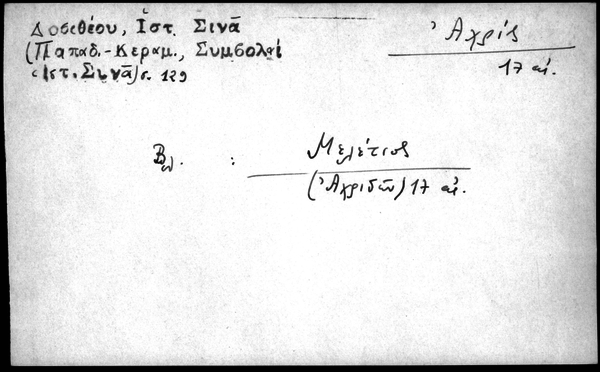 Δοσιθέου, Ἱστ. Σινᾶ
(Παπαδ.-Κεραμ., Συμβολαί
Ἱστ. Σινᾶ) σ. 129
Ἀχρίς
17 αἰ.
Βλ. : Μελέτιος
(Ἀχριδῶν) 17 αἰ.